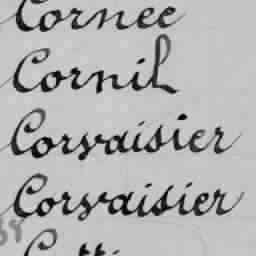 Cornee
Cornil
Corvaisier
Corvaisier